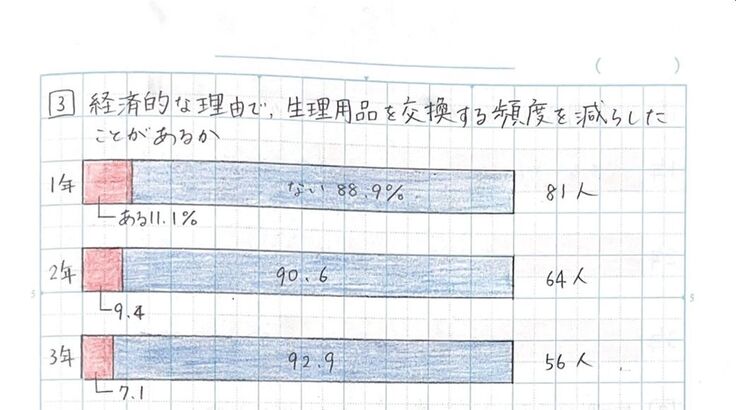 ( )
3 経済的な理由で、生理用品を交換する頻度を減らした
ことがあるか
1年 ない 88.9% 81人
ある11.1%
2年 90.6 64人
9.4
5 5
3年 92.9 56人
7.1